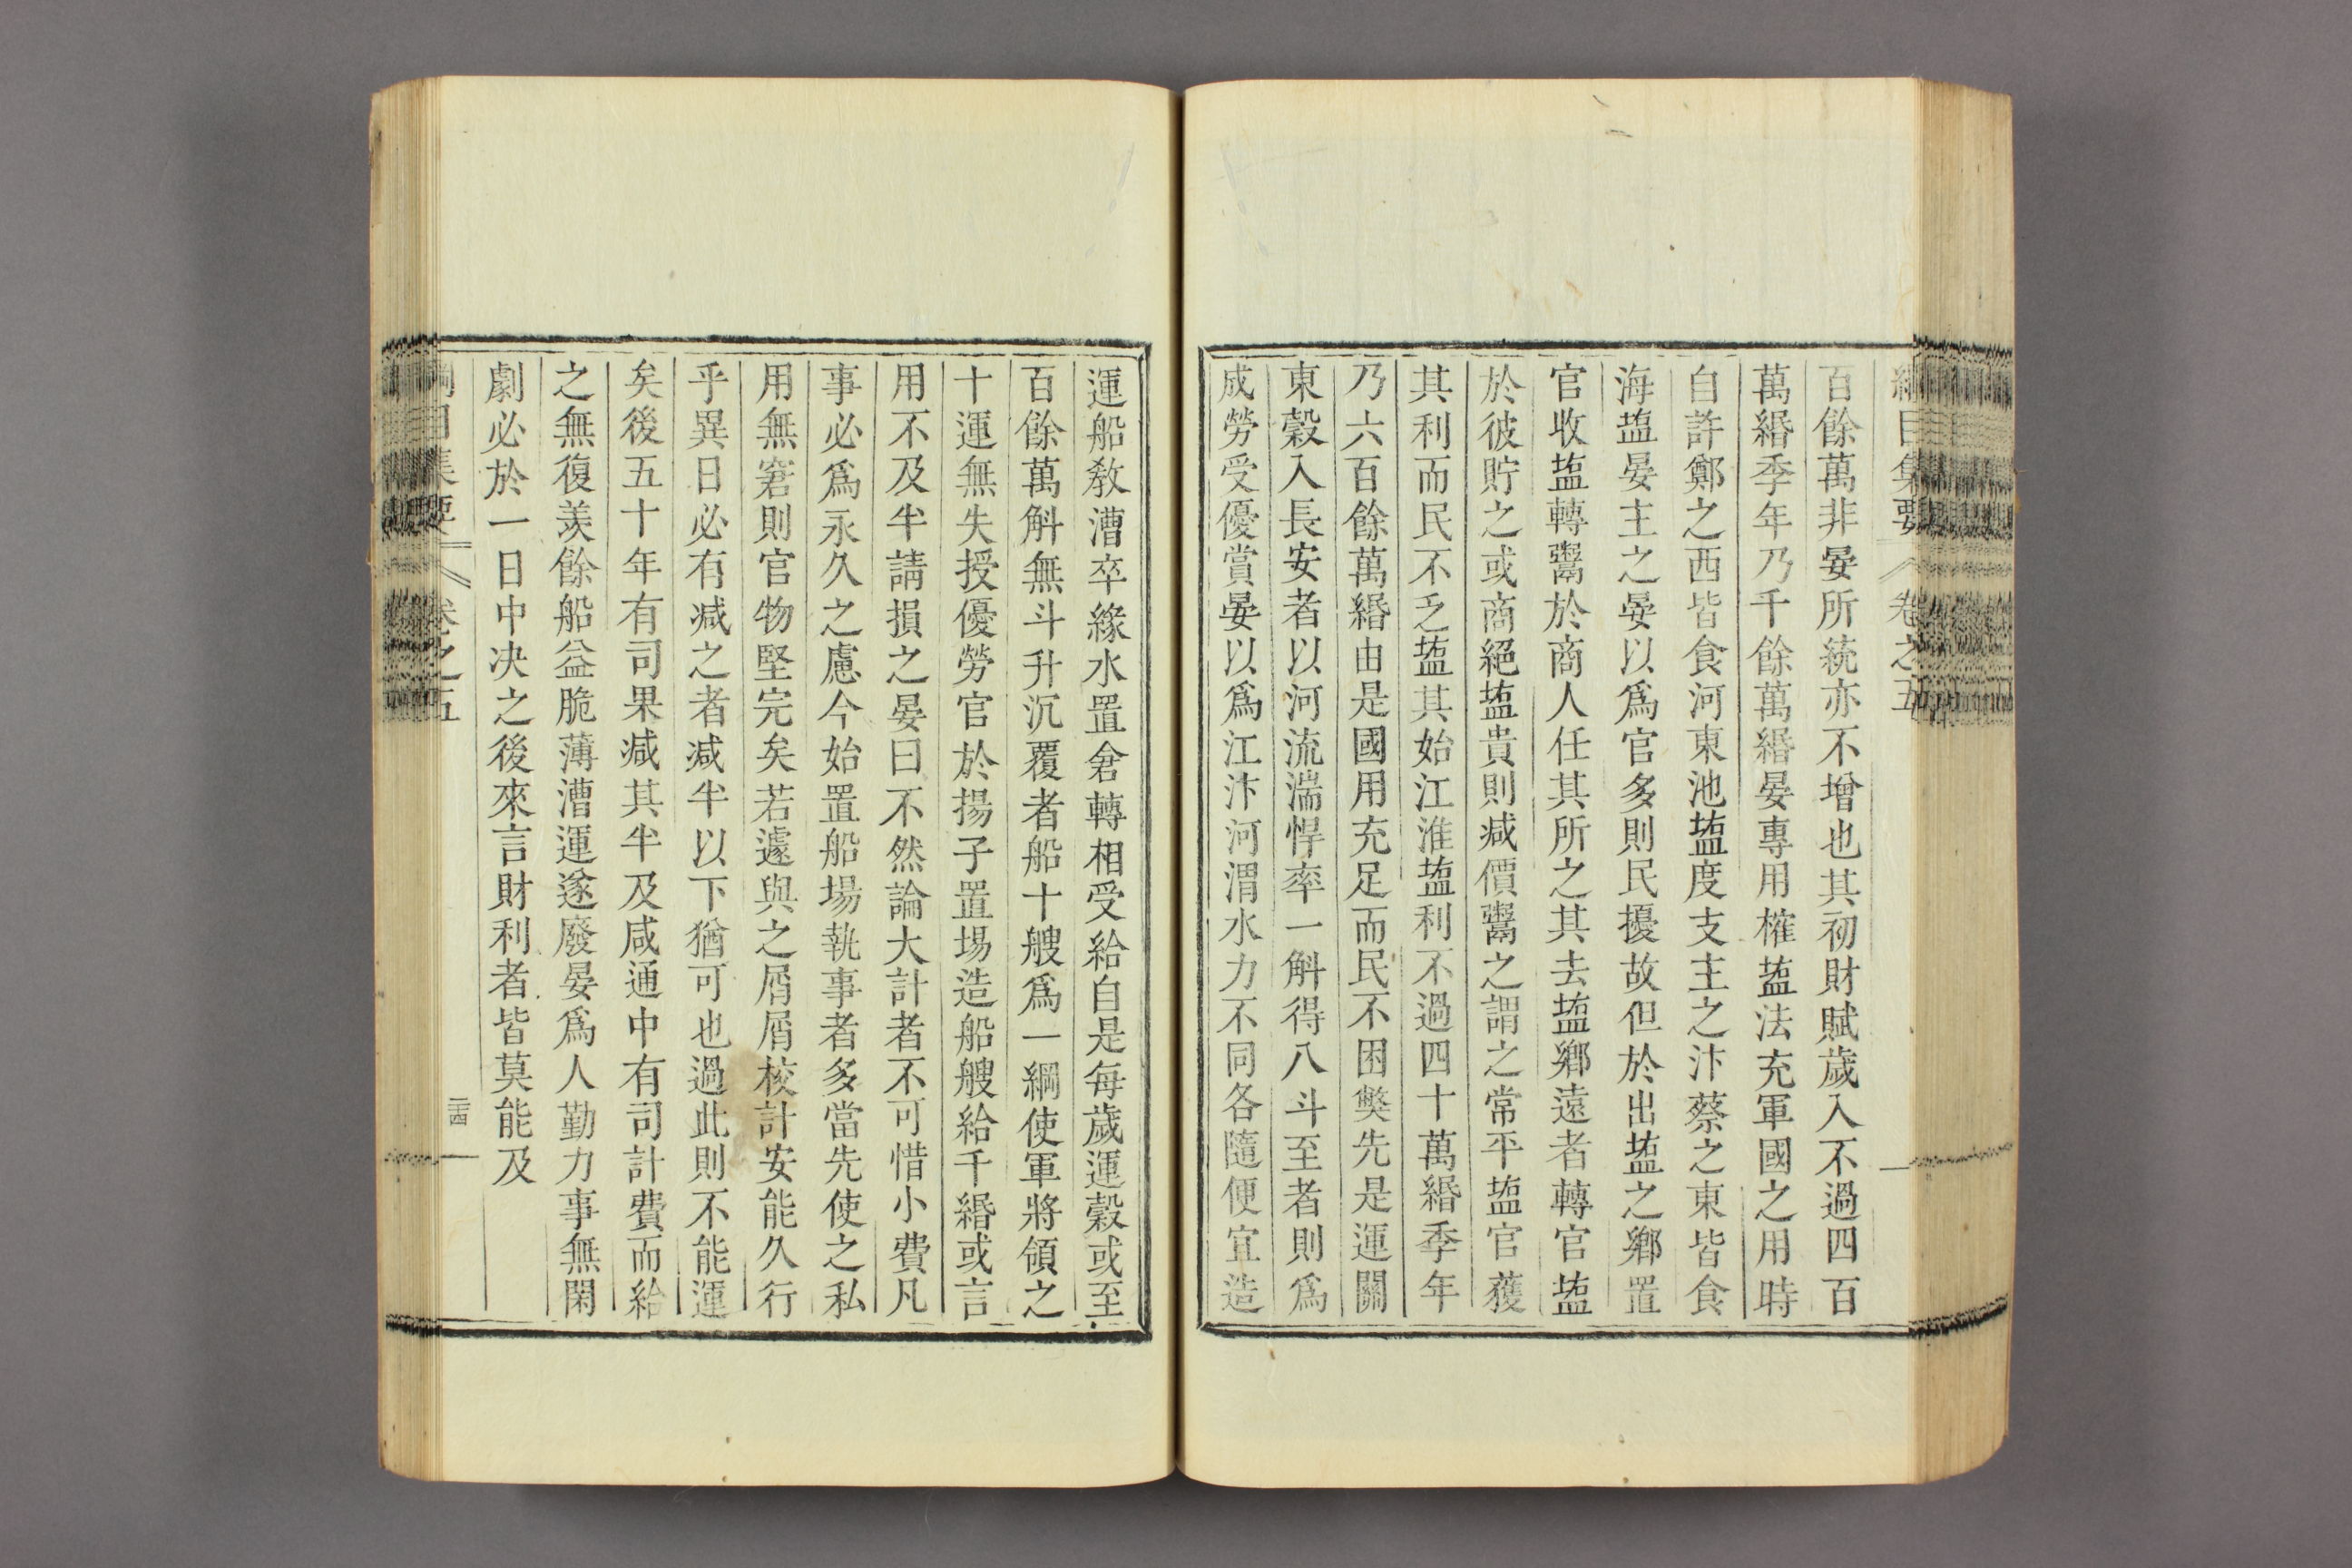 綱目集要 卷之五
百餘萬非晏所統亦不增也其初財賦歲入不過四百
萬緡季年乃千餘萬緡晏專用榷塩法充軍國之用時
自許鄭之西皆食河東池塩度支主之汴蔡之東皆食
海塩晏主之晏以爲官多則民擾故但於出塩之鄉置
官收塩轉鬻於商人任其所之其去塩鄉遠者轉官塩
於彼貯之或商絕塩貴則减價鬻之謂之常平塩官獲
其利而民不乏塩其始江淮塩利不過四十萬緡季年
乃六百餘萬緡由是國用充足而民不困獘先是運關
東穀入長安者以河流湍悍率一斛得八斗至者則爲
成勞受優賞晏以爲江汴河渭水力不同各隨便宜造
運船教漕卒緣水置倉轉相受給自是每歲運穀或至
百餘萬斛無斗升沉覆者船十艘爲一綱使軍將領之
十運無失授優勞官於揚子置場造船艘給千緡或言
用不及半請損之晏曰不然論大計者不可惜小費凡
事必爲永久之慮今始置船場執事者多當先使之私
用無窘則官物堅完矣若遽與之屑屑校計安能久行
乎異日必有减之者减半以下猶可也過此則不能運
矣後五十年有司果减其半及咸通中有司計費而給
之無復羨餘船益脆薄漕運遂廢晏爲人勤力事無閑
劇必於一日中决之後來言財利者皆莫能及
綱目集要 卷之五 二十四